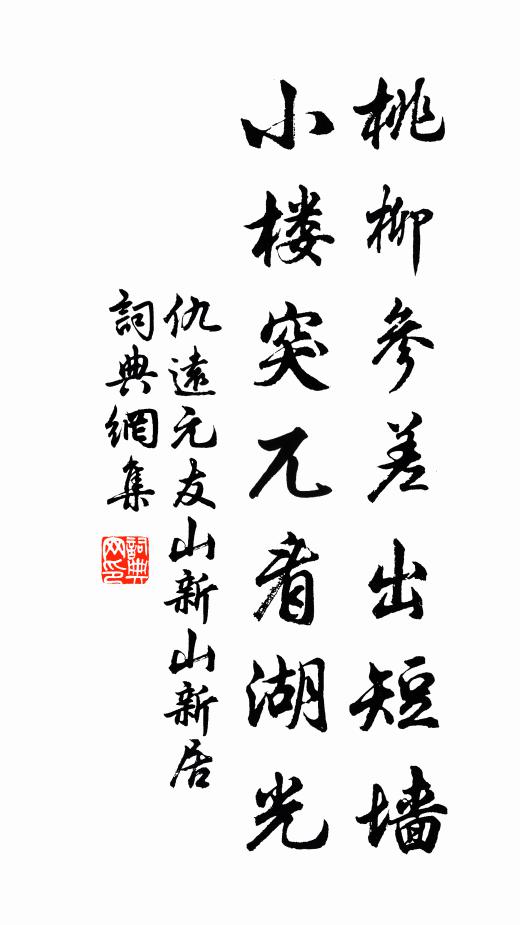 桃柳參差出短墙
小楼突兀看湖光
仇遠元友山新山新居
詞典網集
詞典网印